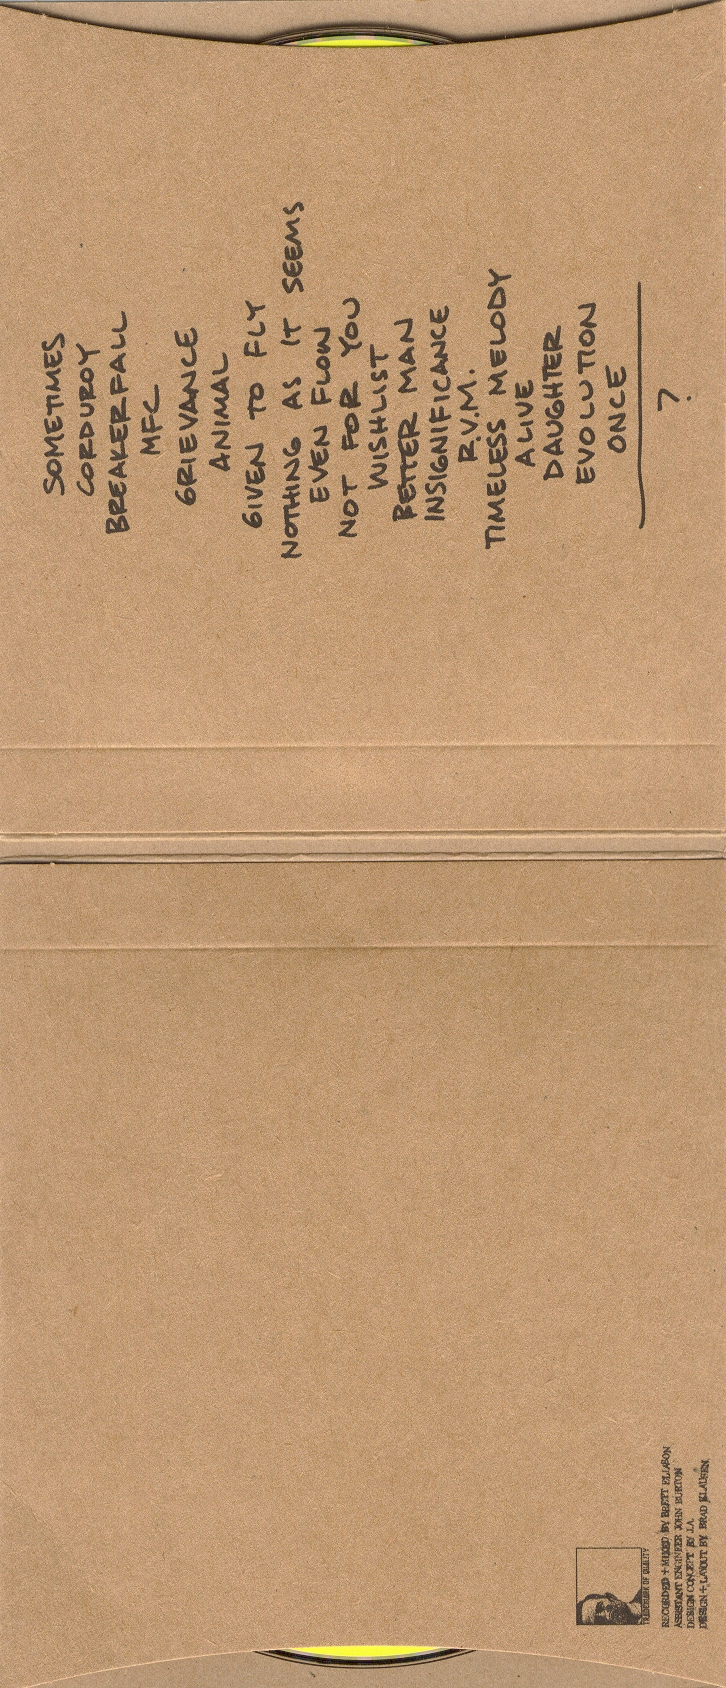 SOMETIMES
CORDUROY
BREAKERFALL
MFC
GRIEVANCE
ANIMAL
GIVEN TO FLY
NOTHING AS IT SEEMS
EVEN FLOW
NOT FOR YOU
WISHLIST
BETTER MAN
INSIGNIFICANCE
R.V.M.
TIMELESS MELODY
ALIVE
DAUGHTER
EVOLUTION
ONCE
?
TRADEMARK OF QUALITY
RECORDED + MIXED BY BRETT ELIASON
ASSISTANT ENGINEER JOHN BURTON
DESIGN CONCEPT BY J.A.
DESIGN + LAYOUT BY BRAD KLAUSEN